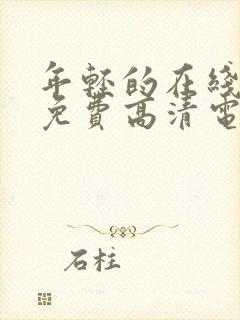 年轻的在线
免费高清电
石柱